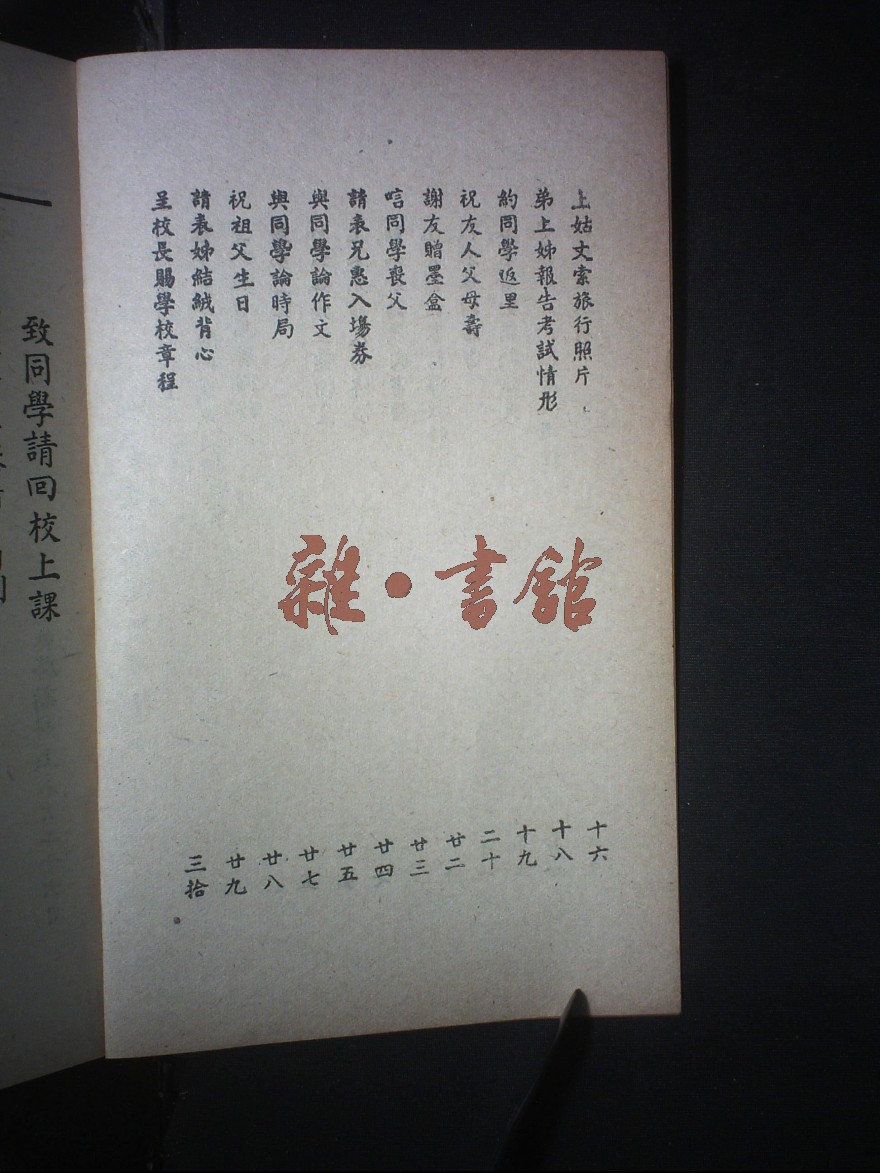 上姑丈索旅行照片 十六
弟上姊報告考試情形 十八
約同學返里 十九
祝友人父母壽 二十
謝友贈墨盒 廿二
唁同學喪父 廿三
請表兄惠入場券 廿四
與同學論作文 廿五
與同學論時局 廿七
祝祖父生日 廿八
請表姊結絨背心 廿九
呈校長賜學校章程 三拾
雜·書館
致同學請回校上課